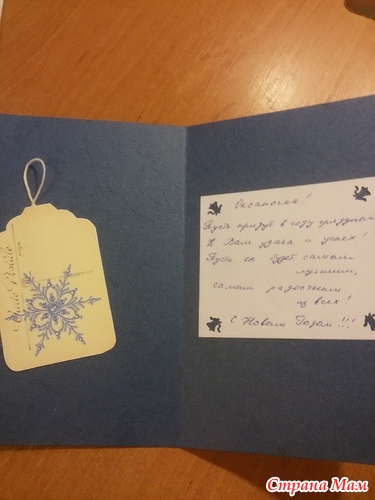 Оксаночка!
Пусть придут в году грядущем
К Вам удача и успех!
Пусть он будет самым
лучшим,
самым радостным
из всех!
С Новым Годом!!!
Страна Мам